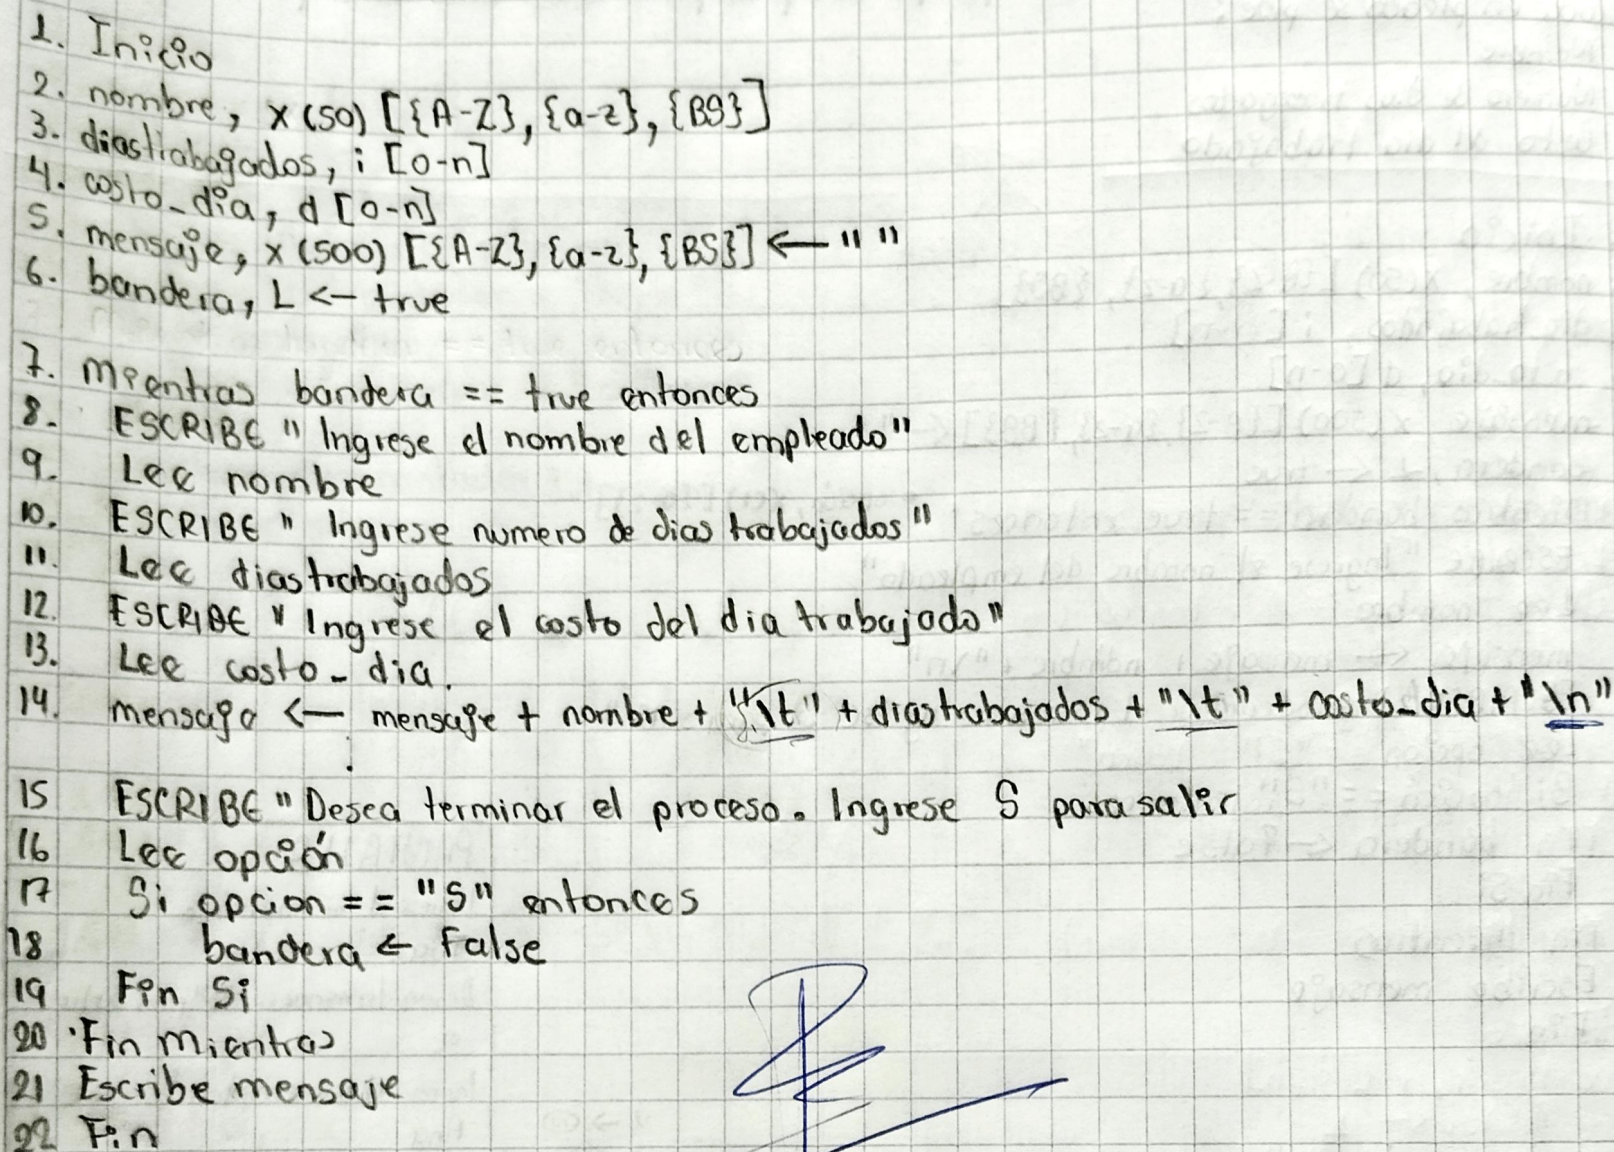 1. Inicio
2. nombre, x (50) [{A-Z}, {a-z}, {BS}]
3. diastrabajados, i [0-n]
4. costo_dia, d [0-n]
5. mensaje, x (500) [{A-Z}, {a-z}, {BS}] ← " "
6. bandera, L <- true
7. Mientras bandera == true entonces
8. ESCRIBE " Ingrese el nombre del empleado"
9. Lee nombre
10. ESCRIBE " Ingrese numero de dias trabajados"
11. Lee diastrabajados
12. ESCRIBE " Ingrese el costo del dia trabajado"
13. Lee costo_dia.
14. mensaje <- mensaje + nombre + "\t" + diastrabajados + "\t" + costo_dia + "\n"
15 ESCRIBE "Desea terminar el proceso. Ingrese S para salir
16 Lee opción
17 Si opcion == "S" entonces
18 bandera ← False
19 Fin Si
20 Fin mientras
21 Escribe mensaje
22 Fin